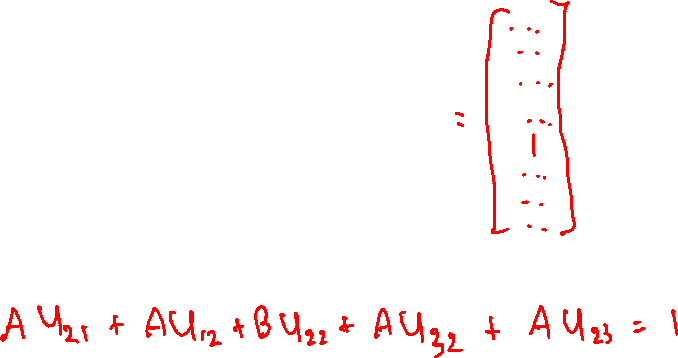 = [ ...
..
...
...
1
...
..
.. ]
A U₂₁ + A U₁₂ + B U₂₂ + A U₃₂ + A U₂₃ = 1